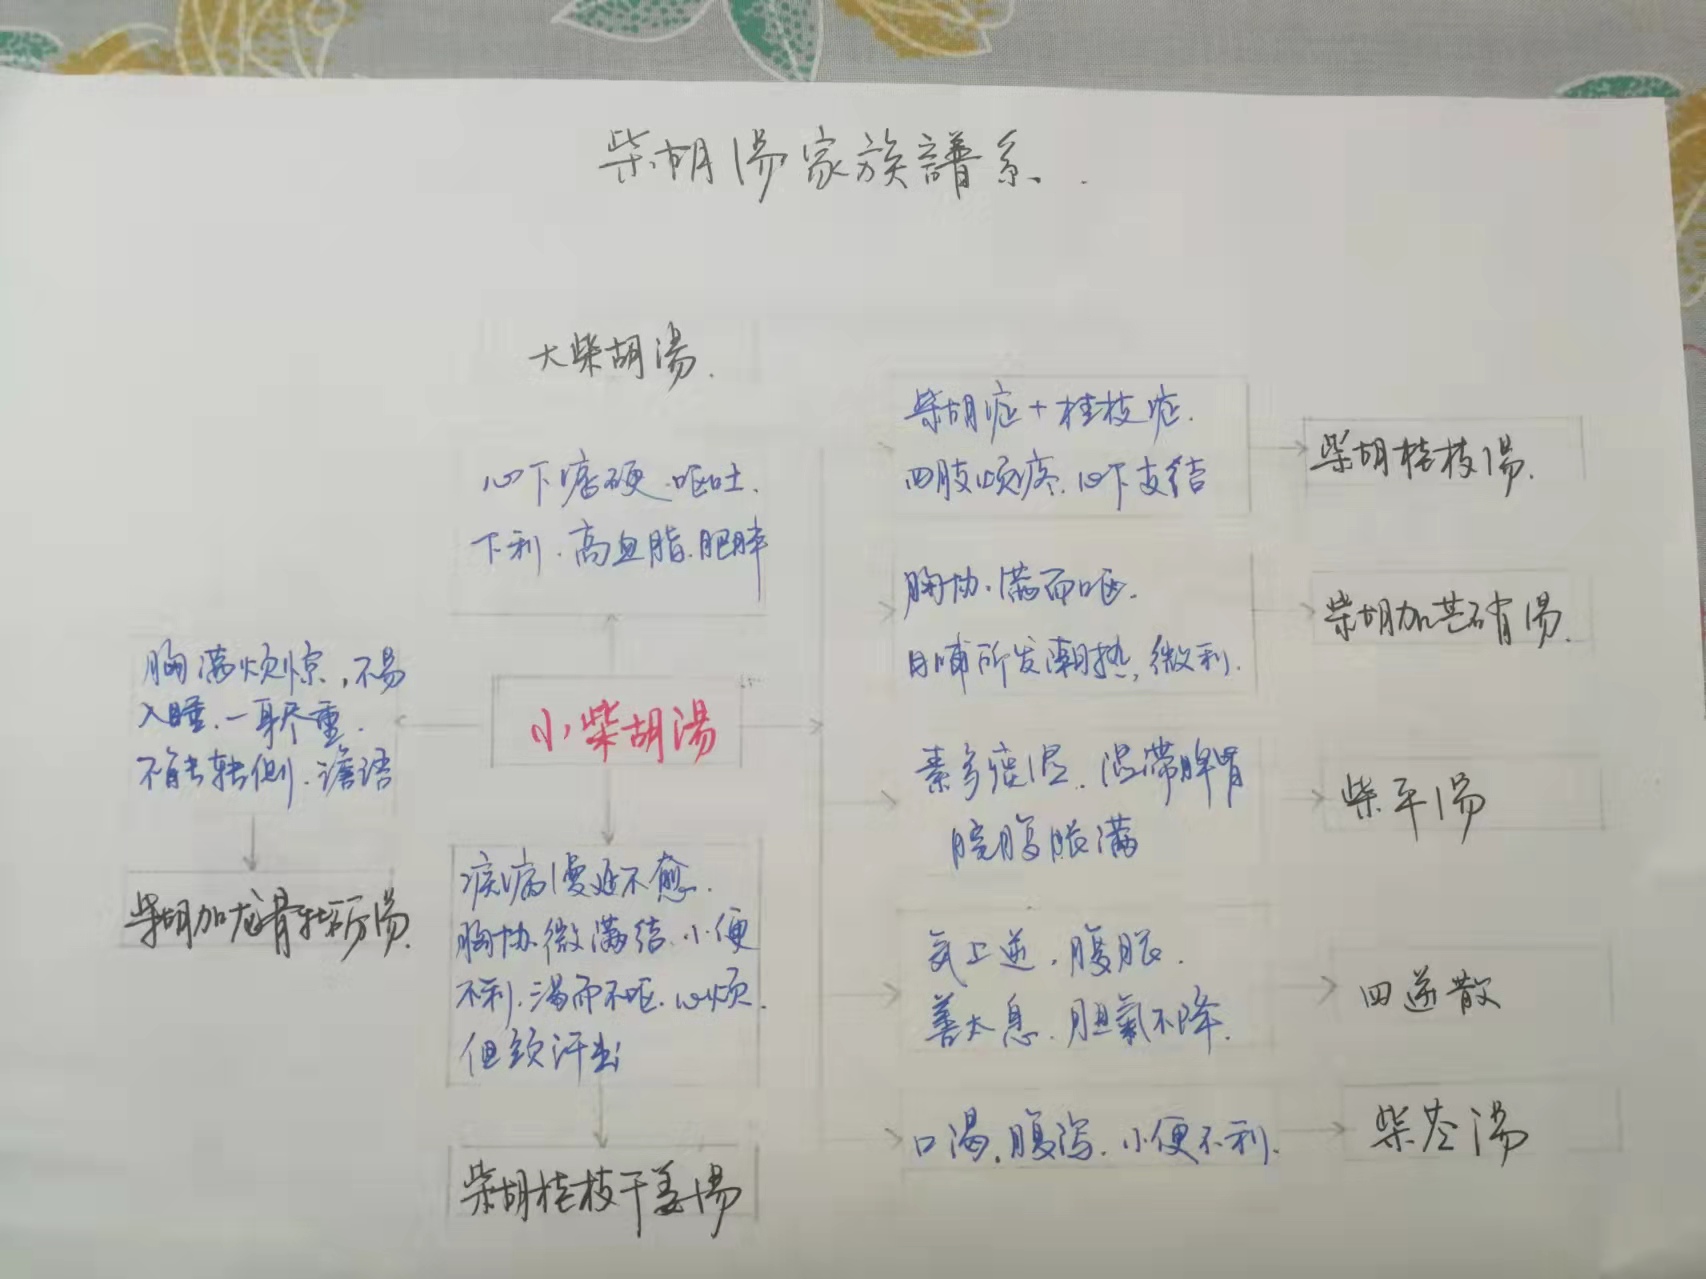 柴胡湯家族譜系.
大柴胡湯.
心下痞硬.呕吐.
下利.高血脂.肥胖
胸满烦惊,不易
入睡.一身尽重.
不能转侧.谵语
柴胡加龙骨牡蛎湯.
小柴胡湯
疾病慢延不愈.
胸协微满结.小便
不利.渴而不呕.心烦.
但頭汗出
柴胡桂枝干姜湯
柴胡症+桂枝症.
四肢烦疼.心下支结
柴胡桂枝湯.
胸协.满而呕.
日晡所发潮热,微利.
柴胡加芒硝湯.
素多痰湿.湿滞脾胃
脘腹胀满
柴平湯
氣上逆.腹胀.
善太息.胆氣不降.
四逆散
口渴.腹泻.小便不利.
柴苓湯